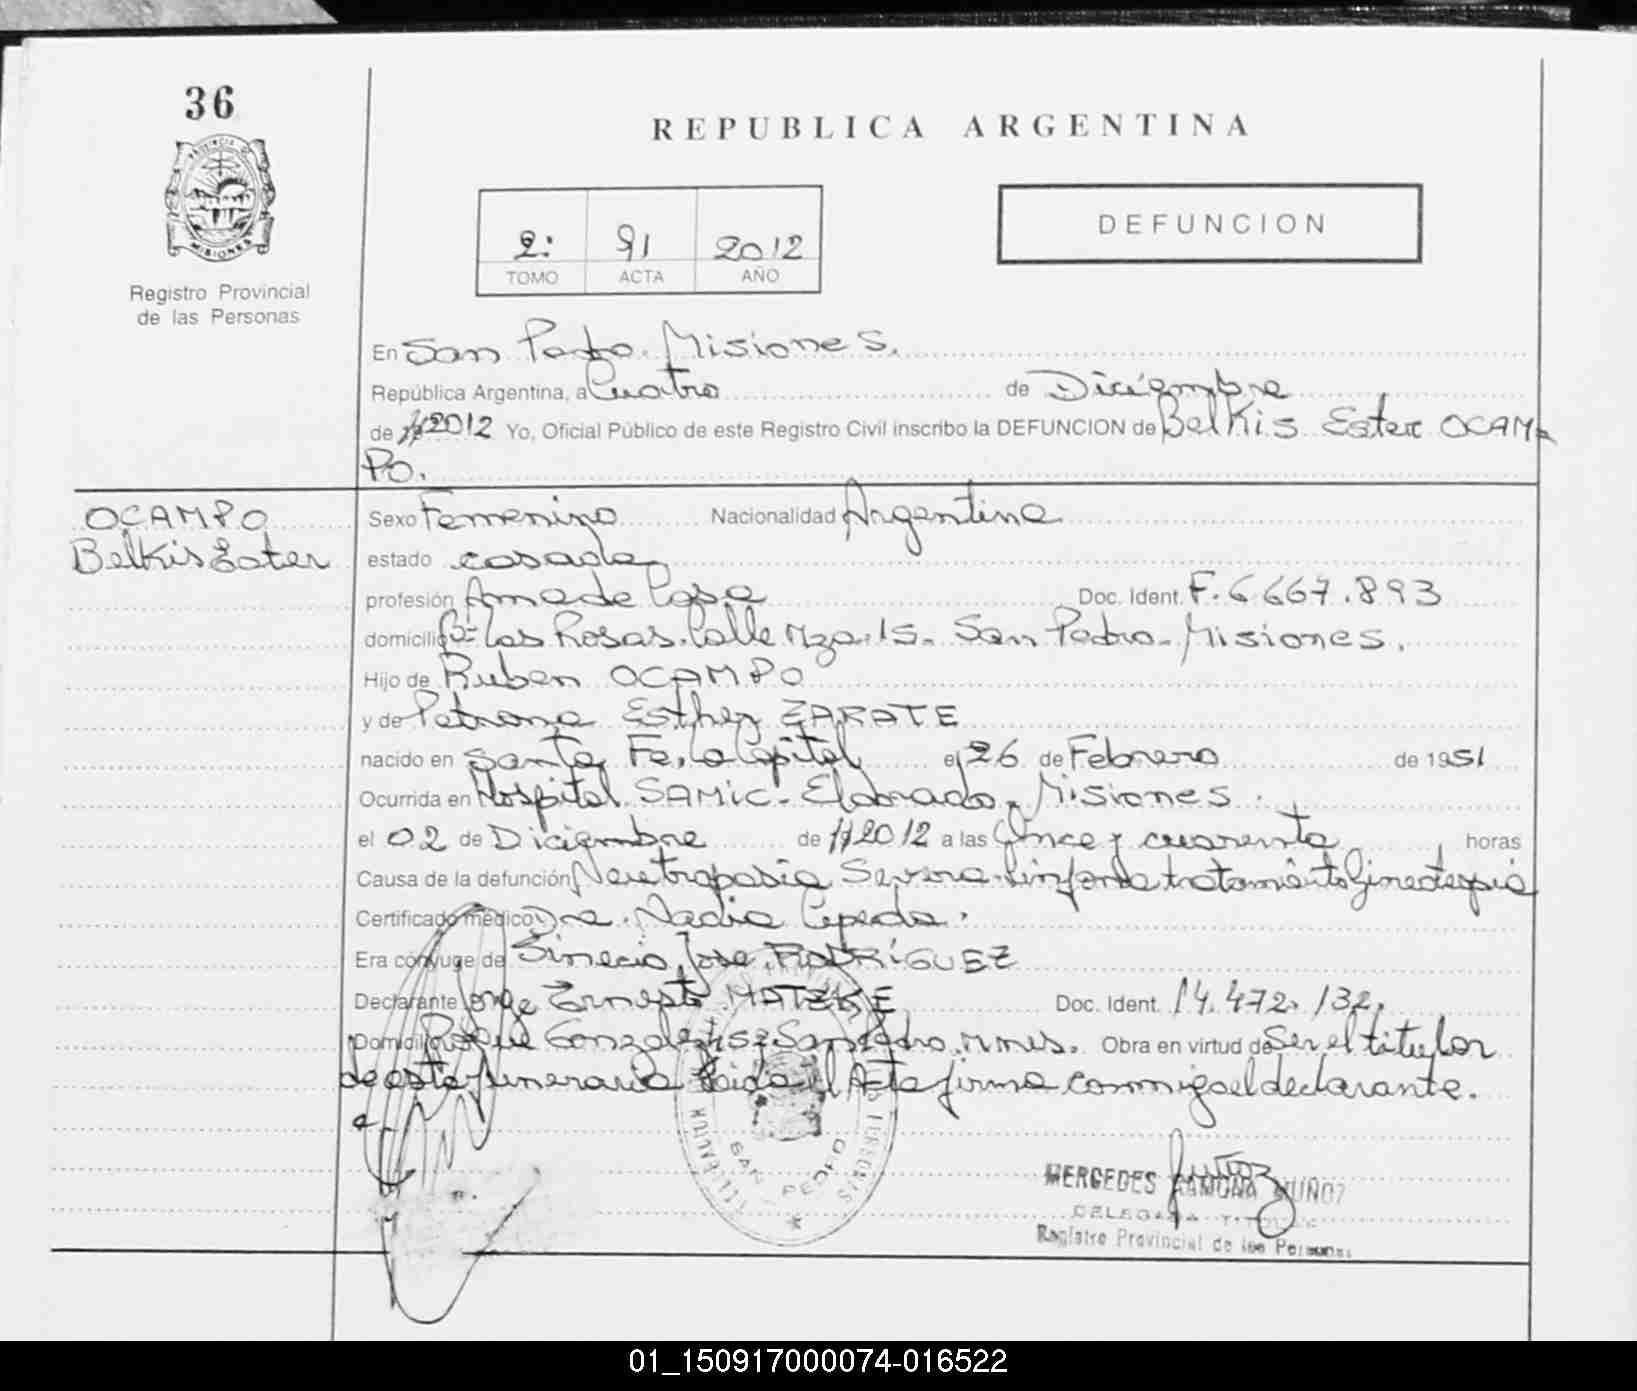 36
REPUBLICA ARGENTINA
PROVINCIA DE
MISIONES
Registro Provincial
de las Personas
2: 91 2012
TOMO ACTA AÑO
DEFUNCION
En San Pedro. Misiones.
República Argentina, a Cuatro de Diciembre
de 2012 Yo, Oficial Público de este Registro Civil inscribo la DEFUNCION de Belkis Ester OCAM-
PO.
OCAMPO
Belkis Ester
Sexo Femenino Nacionalidad Argentina
estado casada
profesión Ama de Casa Doc. Ident. F. 6 667.893
domicilio Bº Las Rosas. Calle Mza. 15. San Pedro - Misiones.
Hijo de Ruben OCAMPO
y de Petrona Esther ZARATE
nacido en Santa Fe, La Capital el 26 de Febrero de 1951
Ocurrida en Hospital SAMIC. Eldorado, Misiones.
el 02 de Diciembre de 2012 a las Once y cuarenta horas
Causa de la defunción Severa. Linfoma tratamiento
Certificado médico Dra. Nadia Cepeda.
Era cónyuge de Simecio Jose RODRÍGUEZ
Declarante Jorge Ernesto MATZKE Doc. Ident. 14.472.132.
Domicilio Roque Gonzalez San Pedro. Mnes. Obra en virtud de Ser el titular
de esta funeraria Leida el Acta firma conmigo el declarante.
SAN PEDRO
MERCEDES RAMONA MUÑOZ
DELEGADA TITULAR
Registro Provincial de las Personas
01_150917000074-016522